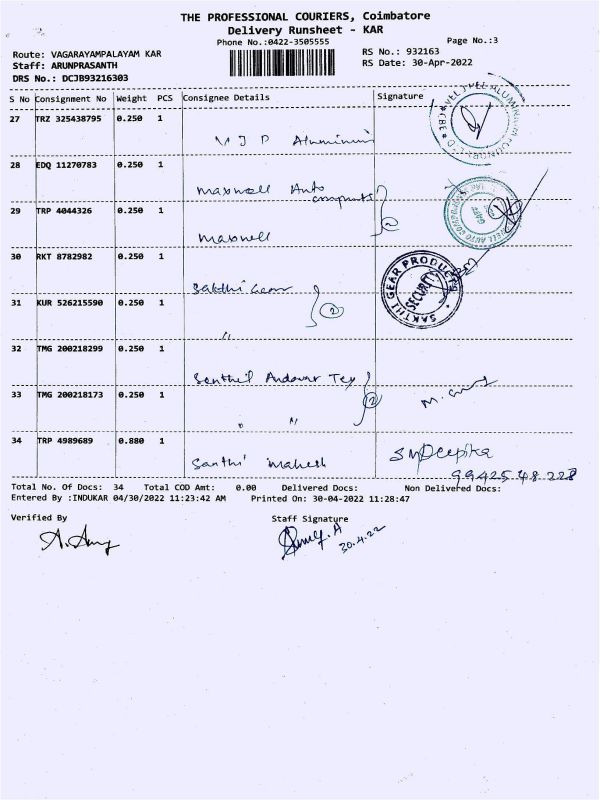 THE PROFESSIONAL COURIERS, Coimbatore
Delivery Runsheet - KAR
Phone No.:0422-3505555
Page No.:3
Route: VAGARAYAMPALAYAM KAR
RS No.: 932163
Staff: ARUNPRASANTH
RS Date: 30-Apr-2022
DRS No.: DCJB93216303
S No Consignment No Weight PCS Consignee Details Signature
27 TRZ 325438795 0.250 1
V J P Aluminium
28 EDQ 11270783 0.250 1
Maxwell Auto
components
29 TRP 4044326 0.250 1
Maxwell
2
30 RKT 8782982 0.250 1
Sakthi Gear
SAKTHI GEAR PRODUCTS
SECURITY
31 KUR 526215590 0.250 1
2
"
32 TMG 200218299 0.250 1
Senthil Andavar Tex
33 TMG 200218173 0.250 1
2
" "
34 TRP 4989689 0.880 1
Santhi Mahesh
SMDeepika
99425 48 228
Total No. Of Docs: 34 Total COD Amt: 0.00 Delivered Docs: Non Delivered Docs:
Entered By :INDUKAR 04/30/2022 11:23:42 AM Printed On: 30-04-2022 11:28:47
Verified By Staff Signature
30.4.22